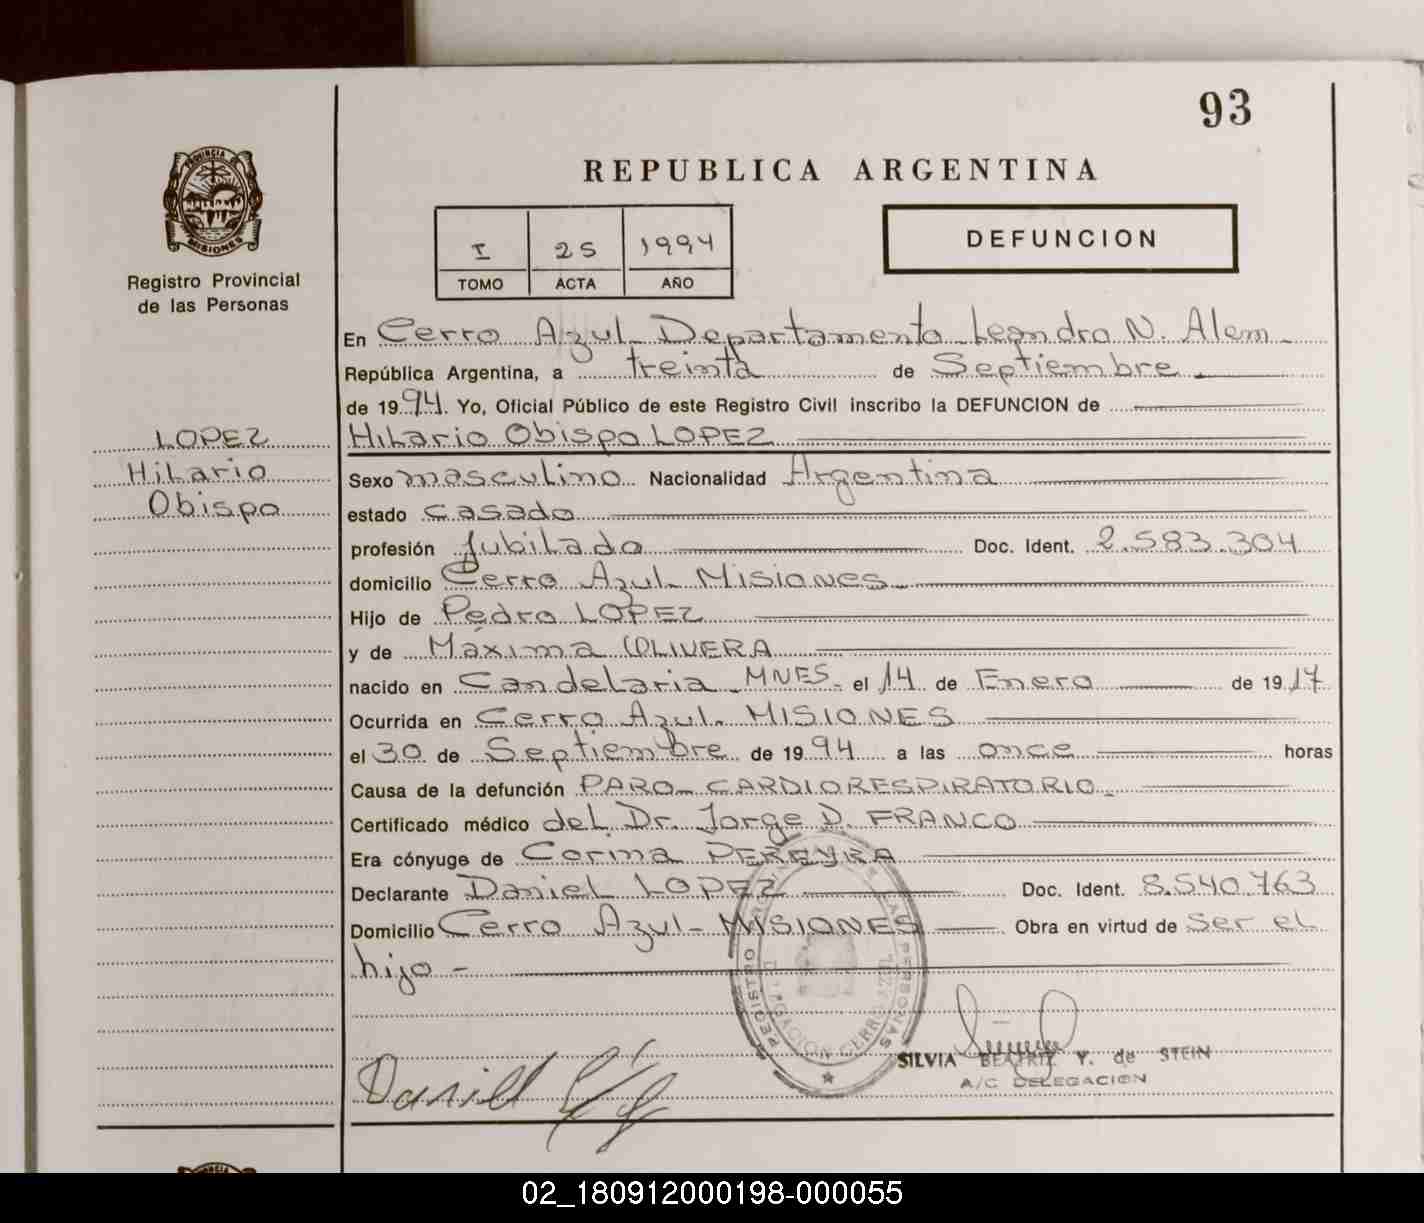 93
PROVINCIA DE
MISIONES
Registro Provincial
de las Personas
REPUBLICA ARGENTINA
I 25 1994
TOMO ACTA AÑO
DEFUNCION
En Cerro Azul Departamento Leandro N. Alem
República Argentina, a treinta de Septiembre
de 1994. Yo, Oficial Público de este Registro Civil inscribo la DEFUNCION de
LOPEZ Hilario Obispo LOPEZ
Hilario Sexo masculino Nacionalidad Argentina
Obispo estado casado
profesión Jubilado Doc. Ident. 2.583.304
domicilio Cerro Azul Misiones
Hijo de Pedro LOPEZ
y de Máxima OLIVERA
nacido en Candelaria MNES. el 14 de Enero de 1917
Ocurrida en Cerro Azul. MISIONES
el 30 de Septiembre de 1994 a las once horas
Causa de la defunción PARO CARDIORESPIRATORIO
Certificado médico del Dr. Jorge D. FRANCO
Era cónyuge de Corina PEREYRA
Declarante Daniel LOPEZ Doc. Ident. 8.540.763
Domicilio Cerro Azul - MISIONES Obra en virtud de ser el
hijo -
REGISTRO PERSONAS
DELEGACION CERRO AZUL
SILVIA BEATRIZ Y. de STEIN
A/C DELEGACION
Daniel
02_180912000198-000055